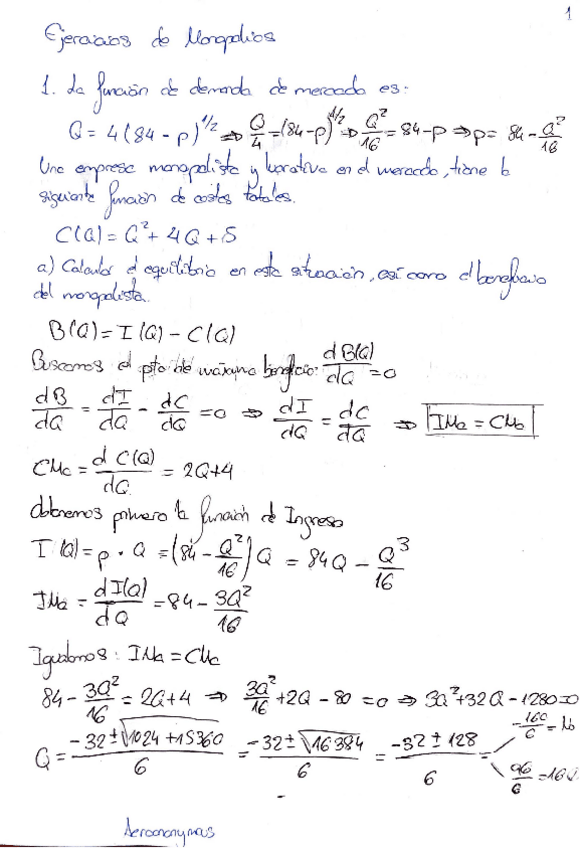 1
Ejercicios de Monopolios
1. La función de demanda de mercado es:
Q = 4(84 - p)^1/2 ⇒ Q/4 = (84-p)^1/2 ⇒ Q²/16 = 84-p ⇒ p = 84 - Q²/16
Una empresa monopolista y lucrativa en el mercado, tiene la
siguiente función de costes totales.
C(Q) = Q² + 4Q + 5
a) Calcular el equilibrio en esta situación, así como el beneficio
del monopolista.
B(Q) = I(Q) - C(Q)
Buscamos el pto de máximo beneficio: dB(Q)/dQ = 0
dB/dQ = dI/dQ - dC/dQ = 0 ⇒ dI/dQ = dC/dQ ⇒ IMa = CMa
CMa = d C(Q)/dQ = 2Q+4
obtenemos primero la función de Ingreso
I(Q) = p · Q = (84 - Q²/16) Q = 84Q - Q³/16
IMa = dI(Q)/dQ = 84 - 3Q²/16
Igualamos: IMa = CMa
84 - 3Q²/16 = 2Q+4 ⇒ 3Q²/16 + 2Q - 80 = 0 ⇒ 3Q² + 32Q - 1280 = 0
Q = (-32 ± √(1024 + 15360))/6 = (-32 ± √16384)/6 = (-32 ± 128)/6 = -160/6 = No
96/6 = 16
Aeroanonymus